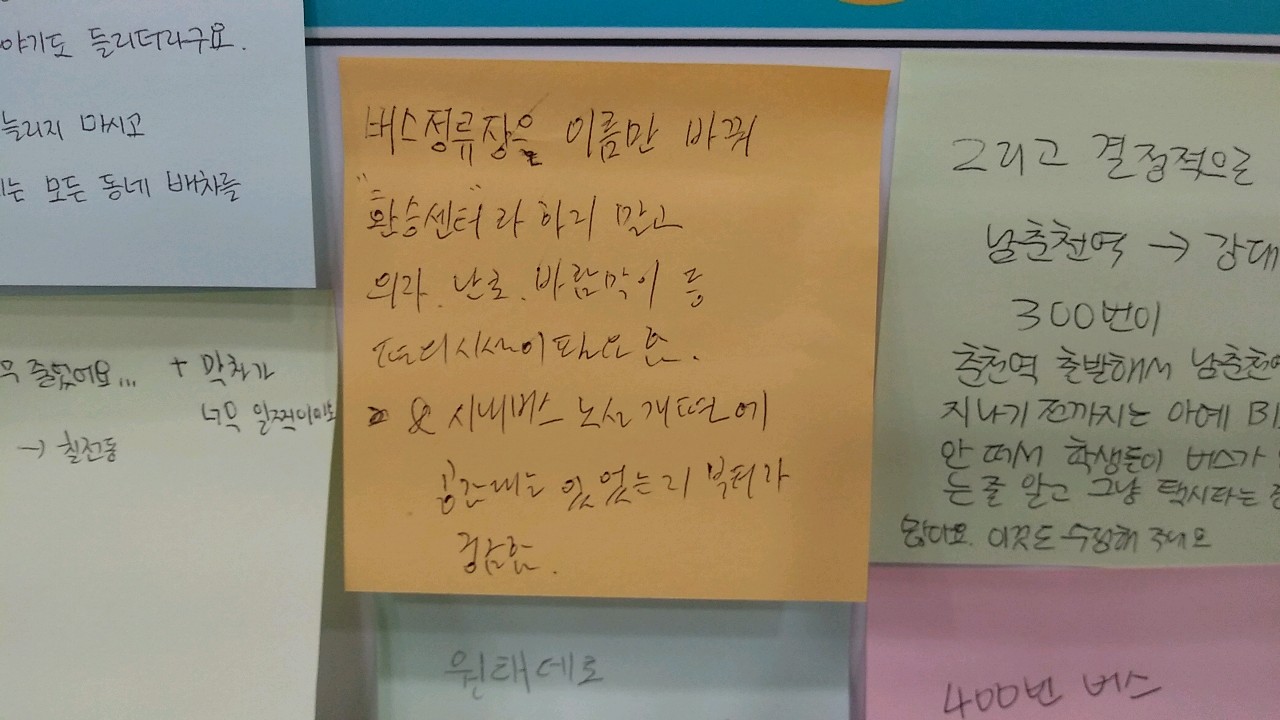 야기도 들리더라구요.
늘리지 마시고
는 모든 동네 배차를
줄었어요... + 막차가
너무 일찍이에요
→ 칠전동
버스정류장을 이름만 바꿔
"환승센터"라 하지 말고
의자. 난로. 바람막이 등
편의시설이 필요함.
& 시내버스 노선개편에
공간대는 있었는지 부터가
궁금함.
원태데로
그리고 결정적으로
남춘천역 → 강대
300번이
춘천역 출발해서 남춘천역
지나기 전까지는 아예 BI
안 떠서 학생들이 버스가
는줄 알고 그냥 택시타는
많아요. 이것도 수정해 주세요
400번 버스